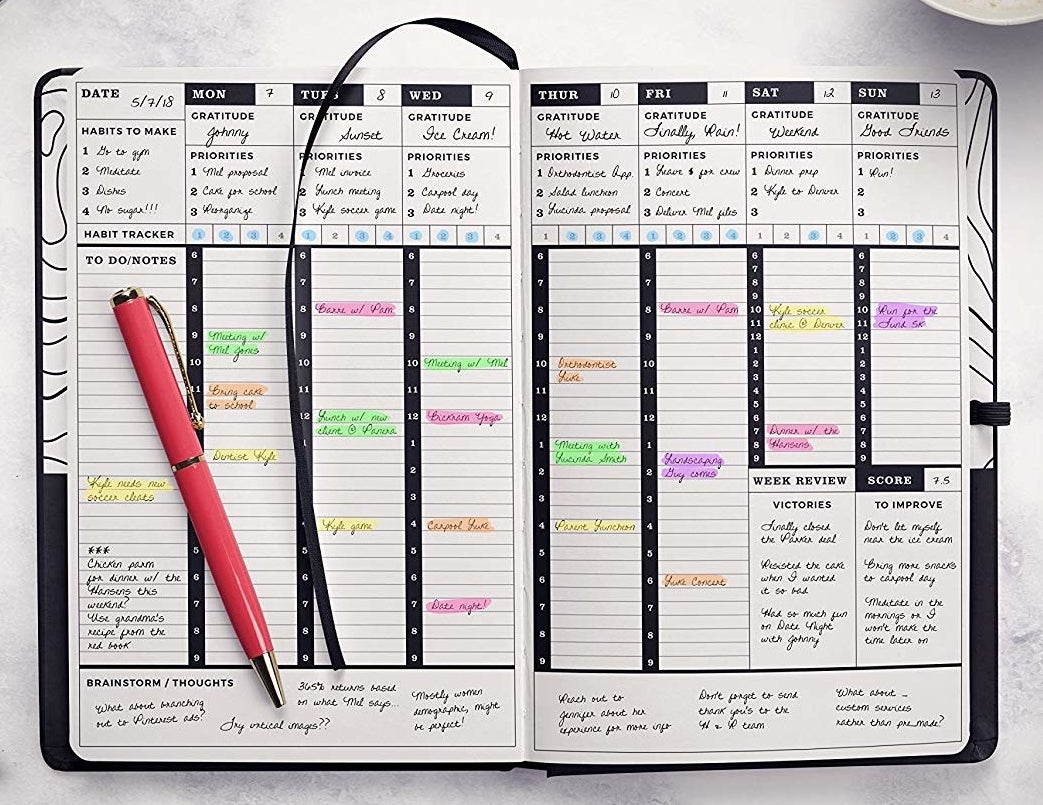 DATE 5/7/18
HABITS TO MAKE
1 Go to gym
2 Meditate
3 Dishes
4 No sugar!!!
HABIT TRACKER
TO DO/NOTES
Kyle needs new
soccer cleats
***
Chicken parm
for dinner w/ the
Hansens this
weekend?
Use grandma's
recipe from the
red book
MON 7
GRATITUDE
Johnny
PRIORITIES
1 Mel proposal
2 Cake for school
3 Reorganize
1 2 3 4
6
7
8
9
10
11
Meeting w/
Mel Jones
Bring cake
to school
Dentist Kyle
8
9
TUES 8
GRATITUDE
Sunset
PRIORITIES
1 Mel invoice
2 Lunch meeting
3 Kyle soccer game
1 2 3 4
6
7
8 Barre w/ Pam
9
10
11
12 Lunch w/ new
client @ Panera
1
2
3
4 Kyle game
5
6
7
8
9
WED 9
GRATITUDE
Ice Cream!
PRIORITIES
1 Groceries
2 Carpool day
3 Date night!
1 2 3 4
6
7
8
9
10 Meeting w/ Mel
11
12 Bickram Yoga
1
2
3
4 Carpool Luke
5
6
7 Date night!
8
9
BRAINSTORM / THOUGHTS
What about branching
out to Pinterest ads?
Try vrtical images??
365% returns based
on what Mel says...
Mostly women
demographic, might
be perfect!
THUR 10
GRATITUDE
Hot Water
PRIORITIES
1 Orthodontist App.
2 Salad luncheon
3 Lucinda proposal
1 2 3 4
6
7
8
9
10 Orthodontist
Luke
11
12
1 Meeting with
Lucinda Smith
2
3
4 Parent Luncheon
5
6
7
8
9
FRI 11
GRATITUDE
Finally, Rain!
PRIORITIES
1 Leave $ for crew
2 Concert
3 Deliver Mel files
1 2 3 4
6
7
8 Barre w/ Pam
9
10
11
12
1
Landscaping
2 Guy comes
3
4
5
6 Luke Concert
7
8
9
SAT 12
GRATITUDE
Weekend
PRIORITIES
1 Dinner prep
2 Kyle to Denver
3
1 2 3 4
6
7
8
9
10 Kyle soccer
11 clinic @ Denver
12
1
2
3
4
5
6
7 Dinner w/ the
8 Hansens
9
SUN 13
GRATITUDE
Good Friends
PRIORITIES
1 Run!
2
3
1 2 3 4
6
7
8
9
10 Run for the
11 Fund 5K
12
1
2
3
4
5
6
7
8
9
WEEK REVIEW
SCORE 7.5
VICTORIES
Finally closed
the Parker deal
Resisted the cake
when I wanted
it so bad
Had so much fun
on Date Night
with Johnny
TO IMPROVE
Don't let myself
near the ice cream
Bring more snacks
to carpool day
Meditate in the
mornings or I
won't make the
time later on
Reach out to
Jennifer about her
experience for more info
Don't forget to send
thank you's to the
H & R team
What about –
custom services
rather than pre_made?